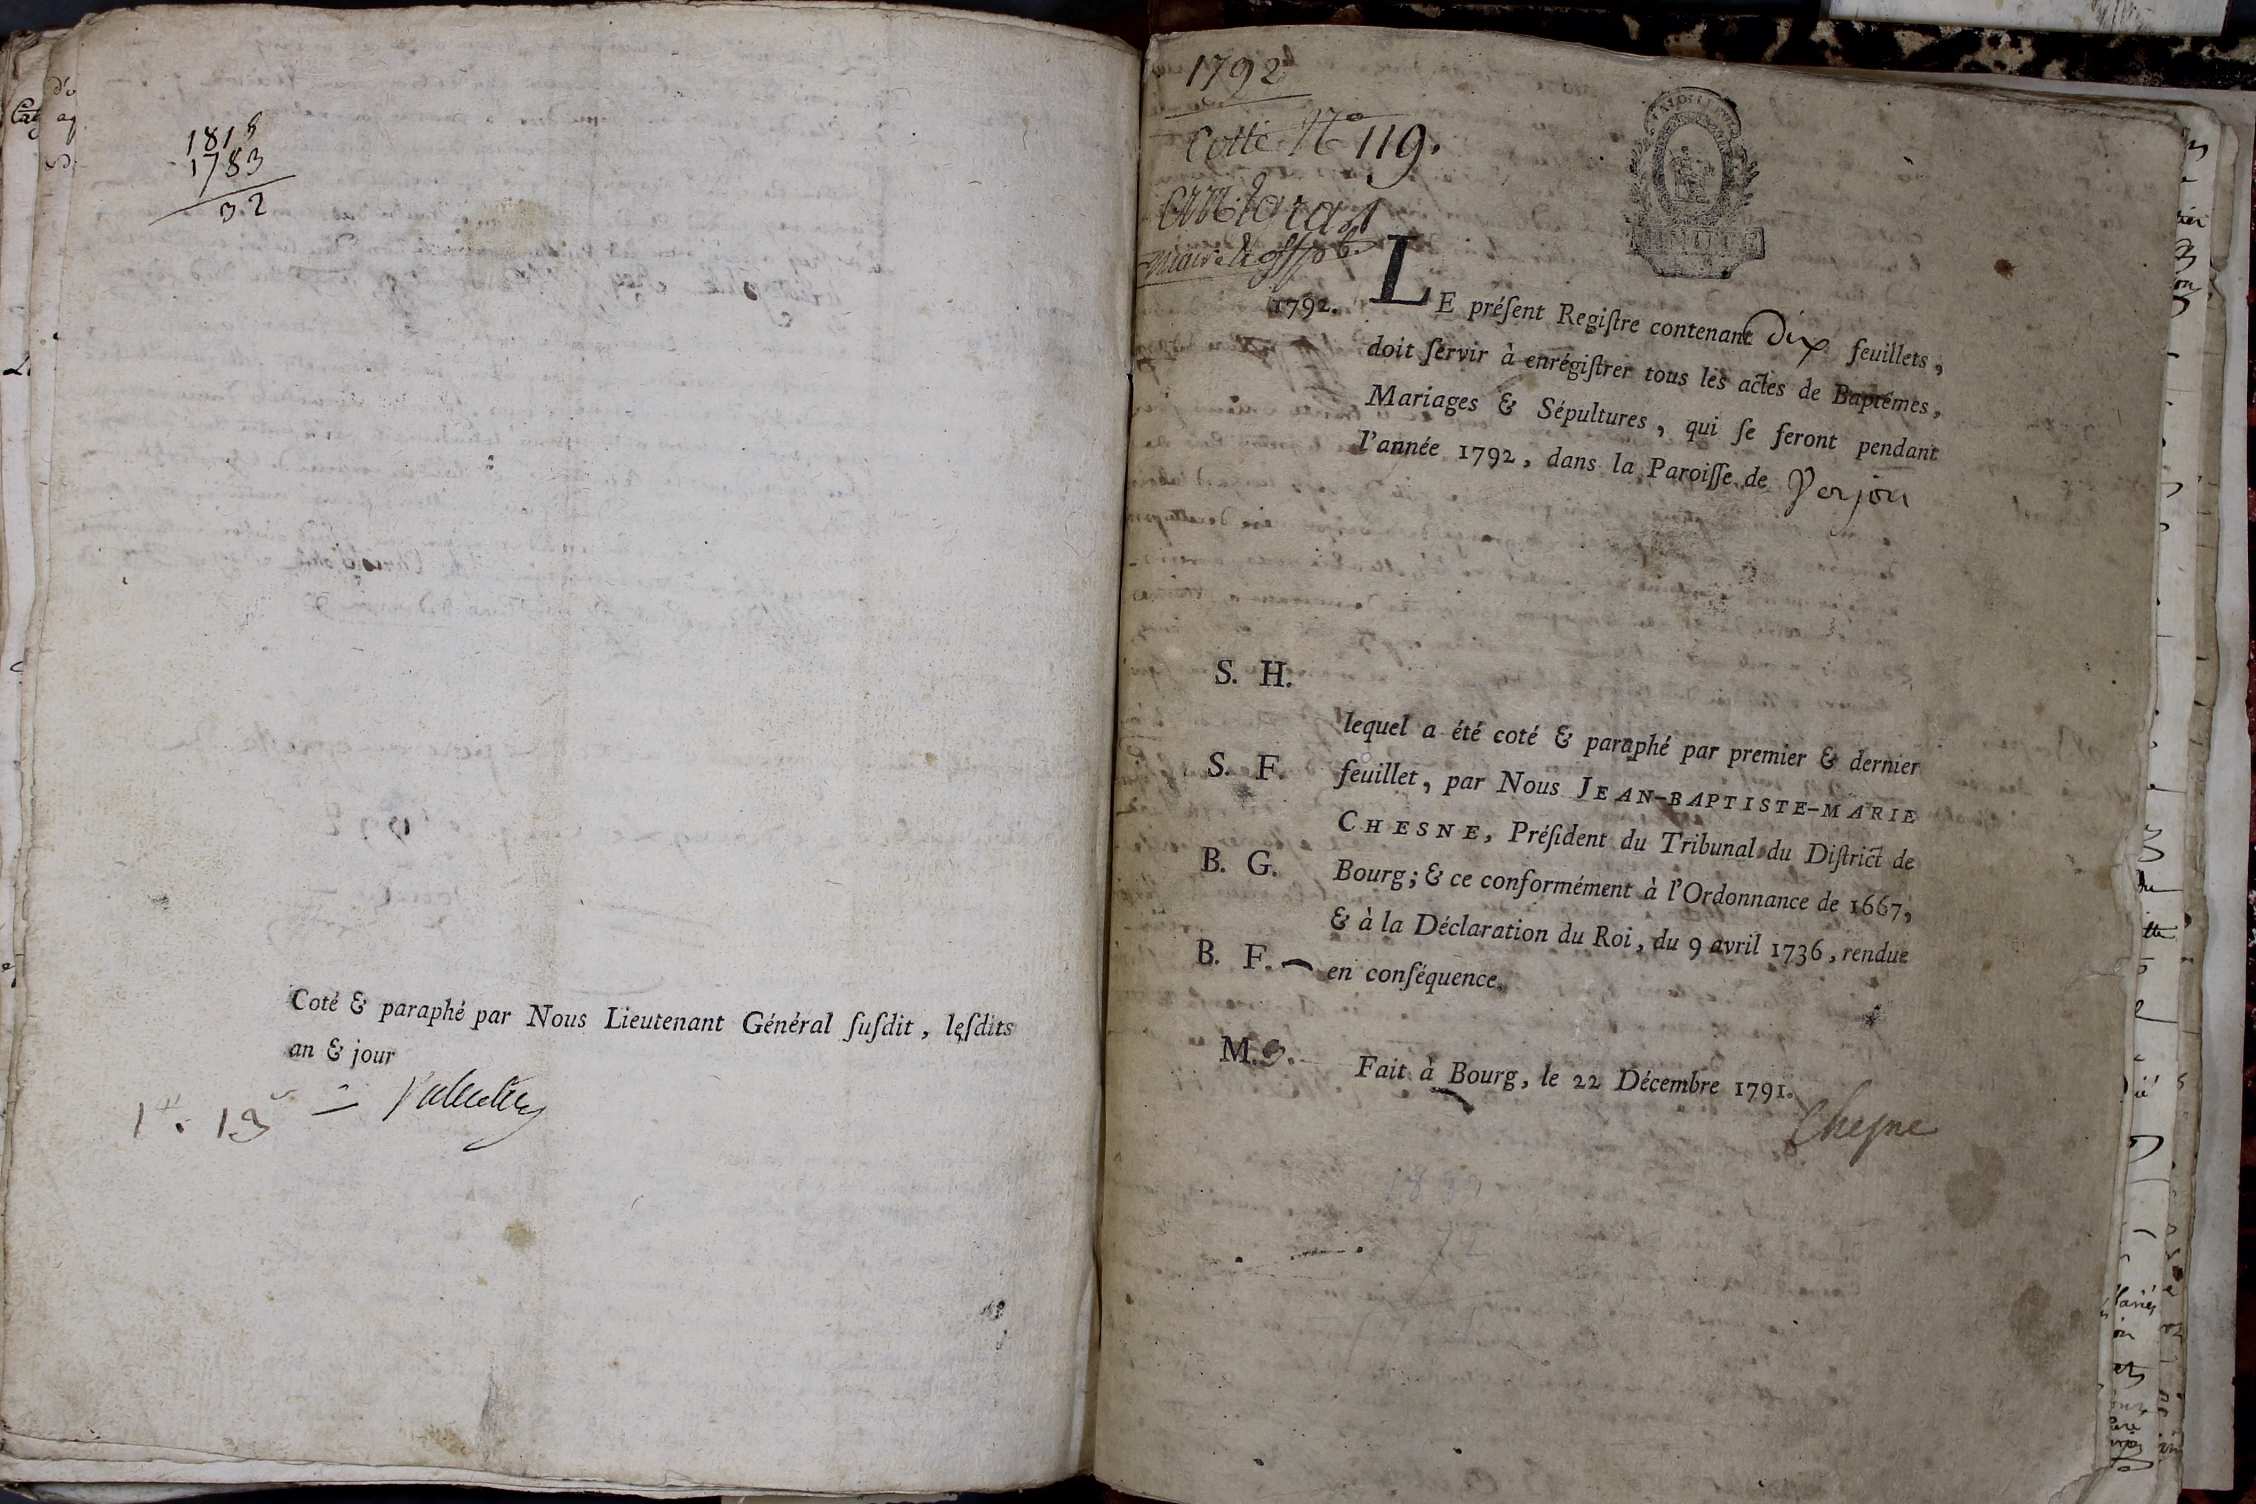 1815
1783
32
Coté & paraphé par Nous Lieutenant Général ſuſdit, leſdits
an & jour
1792
Cotte N° 119.
1792.
LE préſent Regiſtre contenant dix feuillets,
doit ſervir à enrégiſtrer tous les actes de Baptêmes,
Mariages & Sépultures, qui ſe feront pendant
l'année 1792, dans la Paroiſſe de Verjon
S. H.
lequel a été coté & paraphé par premier & dernier
S. F.
feuillet, par Nous JEAN-BAPTISTE-MARIE
CHESNE, Préſident du Tribunal du Diſtrict de
B. G.
Bourg; & ce conformément à l'Ordonnance de 1667,
& à la Déclaration du Roi, du 9 avril 1736, rendue
B. F.
en conſéquence.
M. 9.
Fait à Bourg, le 22 Décembre 1791.
Cheſne